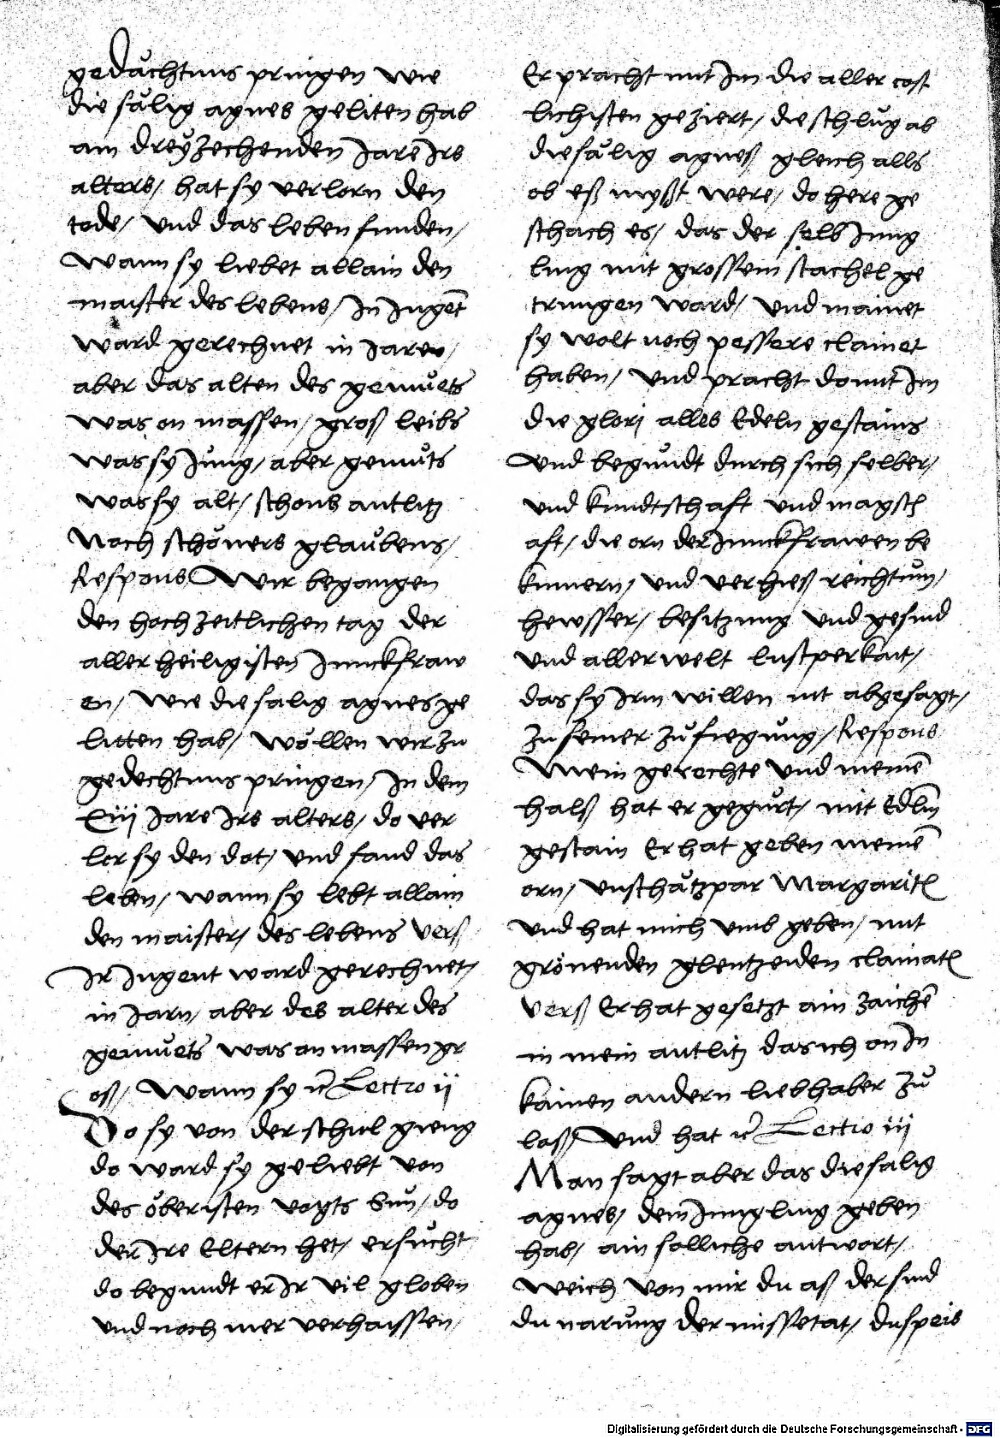 gedächtnus pringen wie
die sälig agnes geliten hab
am dreyzechenden Jare Irs
alters/ hat sy verlorn den
tode/ und das leben funden/
Wann sy liebet allain den
maister des lebens/ In Juget
ward gerechnet in Jaren/
aber das alten des gemuets
was on massen/ groß leibs
was sy Jung/ aber gemuts
was sy alt/ schons antlitz
Noch schöners glaubens/
Respons Wir begangen
den hochzeitlichen tag der
aller heiligisten Junckfraw
en/ wie die salig agnes ge
litten hab/ wöllen wir zu
gedechtnus pringen/ In dem
Xiij Jare Irs alters/ do ver
lor sy den dot/ und fand das
leben/ wann sy lebt allain
den maister/ des lebens Verß
Ir Jugent ward gerechnet/
in Jarn/ aber des alter des
gemuets was on massen gr
oß/ Wann sy Lectio ij
Do sy von der schul gieng
do ward sy geliebt von
des öberisten vogts Sun/ do
der Ire Eltern het/ ersucht
do begundt er Ir vil globen
und noch mer verhaissen/
Er pracht mit Im die aller cost
lichisten geziert/ die schlug ab
die sälig agneß gleich alls
ob eß myßt were/ do here ge
schach es/ das der selb Jung
ling mit grossem stachel ge
trungen ward/ und mainet
sy wolt noch pessere clainet
haben/ und pracht domit Im
die glori alles Edeln gestains
und begundt durch sich selber/
und kundtschaft und magsch
aft/ die orn der Junckfrawen be
kimern/ und verhieß reichtum/
hewsser/ besitzung und gesind
und aller welt lustperkait/
das sy Irm willen nit abgesagt/
zu seiner zufiegung/ Respons
Mein gerechte und meine
halß hat er gegurt/ mitt Edlm
gestain Er hat geben meine
orn/ unschätzpar Margarit
und hat mich umb geben/ mit
grönenden glentzeiden clainat
Verß Er hat gesetzt ain zaiche
in mein antlitz das ich on In
kainen andern liebhaber zu
laß/ und hat Lectio iij
Man sagt aber das die salig
agnes/ dem Jungling geben
hab/ ain solliche antwort/
weich von mir du aß der sind
du narung der missetat/ du speis
Digitalisierung gefördert durch die Deutsche Forschungsgemeinschaft - DFG